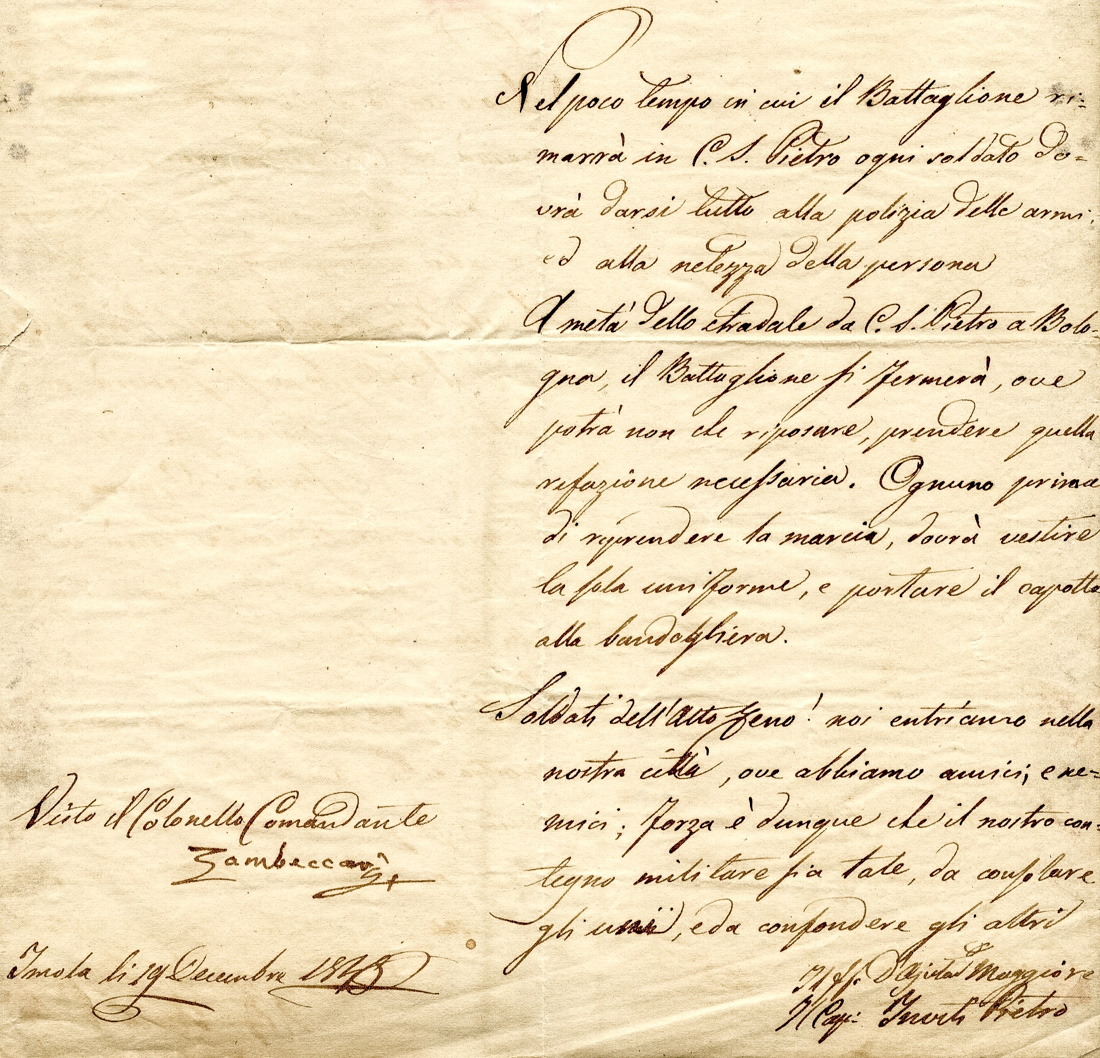 Nel poco tempo in cui il Battaglione ri-
marrà in C. S. Pietro ogni soldato do-
vrà darsi tutto alla polizia delle armi,
ed alla netezza della persona
A metà dello stradale da C. S. Pietro a Bolo-
gna, il Battaglione si fermerà, ove
potrà non che riposare, prendere quella
refazione necessaria. Ognuno prima
di riprendere la marcia, dovrà vestire
la sola uniforme, e portare il capotto
alla bandogliera.
Soldati dell'Alto Reno! noi entriamo nella
nostra città, ove abbiamo amici, e ne-
mici; forza è dunque che il nostro con-
tegno militare sia tale, da consolare
gli uni, e da confondere gli altri
Visto il Colonello Comandante
Zambeccari
Imola li 19 Decembre 1848
Il ff. D'Ajutte Maggiore
Il Cap: Pietro